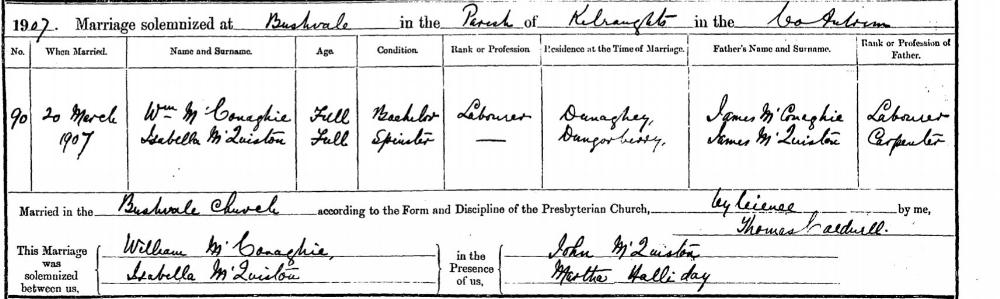 1907. Marriage solemnized at Bushvale in the Parish of Kilraughts in the Co Antrim
No. When Married. Name and Surname. Age. Condition. Rank or Profession. Residence at the Time of Marriage. Father's Name and Surname. Rank or Profession of Father.
90 20 March 1907 Wm McConaghie Full Bachelor Labourer Dunaghey, James McConaghie Labourer
Isabella McQuiston Full Spinster — Dungorberry, James McQuiston Carpenter
Married in the Bushvale Church according to the Form and Discipline of the Presbyterian Church, by licence by me,
Thomas Caldwell.
This Marriage was solemnized between us, William McConaghie, in the Presence of us, John McQuiston
Isabella McQuiston Martha Halliday